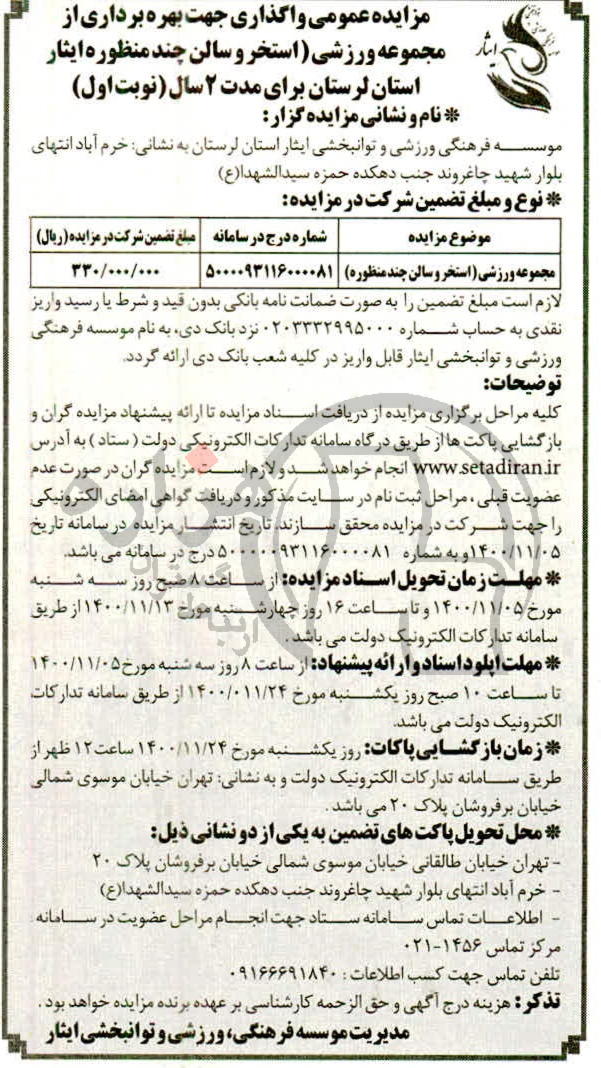 مزایده عمومی واگذاری جهت بهره برداری از
مجموعه ورزشی (استخر و سالن چند منظوره ایثار
استان لرستان برای مدت ۲ سال (نوبت اول)
ایثار
* نام و نشانی مزایده گزار:
موسسه فرهنگی ورزشی و توانبخشی ایثار استان لرستان به نشانی: خرم آباد انتهای
بلوار شهید چاغروند جنب دهکده حمزه سیدالشهدا(ع)
* نوع و مبلغ تضمین شرکت در مزایده:
موضوع مزایده شماره درج در سامانه مبلغ تضمین شرکت در مزایده (ریال)
مجموعه ورزشی (استخر و سالن چند منظوره) ۵۰۰۰۰۹۳۱۱۶۰۰۰۰۸۱ ۳۳۰/۰۰۰/۰۰۰
لازم است مبلغ تضمین را به صورت ضمانت نامه بانکی بدون قید و شرط یا رسید واریز
نقدی به حساب شماره ۰۲۰۳۳۳۲۹۹۵۰۰۰ نزد بانک دی، به نام موسسه فرهنگی
ورزشی و توانبخشی ایثار قابل واریز در کلیه شعب بانک دی ارائه گردد.
توضیحات:
کلیه مراحل برگزاری مزایده از دریافت اسناد مزایده تا ارائه پیشنهاد مزایده گران و
بازگشایی پاکت ها از طریق درگاه سامانه تدارکات الکترونیکی دولت (ستاد) به آدرس
www.setadiran.ir انجام خواهد شد و لازم است مزایده گران در صورت عدم
عضویت قبلی، مراحل ثبت نام در سایت مذکور و دریافت گواهی امضای الکترونیکی
را جهت شرکت در مزایده محقق سازند، تاریخ انتشار مزایده در سامانه تاریخ
۱۴۰۰/۱۱/۰۵ و به شماره ۵۰۰۰۰۰۹۳۱۱۶۰۰۰۰۸۱ درج در سامانه می باشد.
* مهلت زمان تحویل اسناد مزایده: از ساعت ۸ صبح روز سه شنبه
مورخ ۱۴۰۰/۱۱/۰۵ و تا ساعت ۱۶ روز چهارشنبه مورخ ۱۴۰۰/۱۱/۱۳ از طریق
سامانه تدارکات الکترونیک دولت می باشد.
* مهلت اپلود اسناد و ارائه پیشنهاد: از ساعت ۸ روز سه شنبه مورخ ۱۴۰۰/۱۱/۰۵
تا ساعت ۱۰ صبح روز یکشنبه مورخ ۱۴۰۰/۰۱۱/۲۴ از طریق سامانه تدارکات
الکترونیک دولت می باشد.
* زمان بازگشایی پاکات: روز یکشنبه مورخ ۱۴۰۰/۱۱/۲۴ ساعت ۱۲ ظهر از
طریق سامانه تدارکات الکترونیک دولت و به نشانی: تهران خیابان موسوی شمالی
خیابان برفروشان پلاک ۲۰ می باشد.
* محل تحویل پاکت های تضمین به یکی از دو نشانی ذیل:
- تهران خیابان طالقانی خیابان موسوی شمالی خیابان برفروشان پلاک ۲۰
- خرم آباد انتهای بلوار شهید چاغروند جنب دهکده حمزه سیدالشهدا(ع)
- اطلاعات تماس سامانه ستاد جهت انجام مراحل عضویت در سامانه
مرکز تماس ۱۴۵۶-۰۲۱
تلفن تماس جهت کسب اطلاعات: ۰۹۱۶۶۶۹۱۸۴۰
تذکر: هزینه درج آگهی و حق الزحمه کارشناسی بر عهده برنده مزایده خواهد بود.
مدیریت موسسه فرهنگی، ورزشی و توانبخشی ایثار